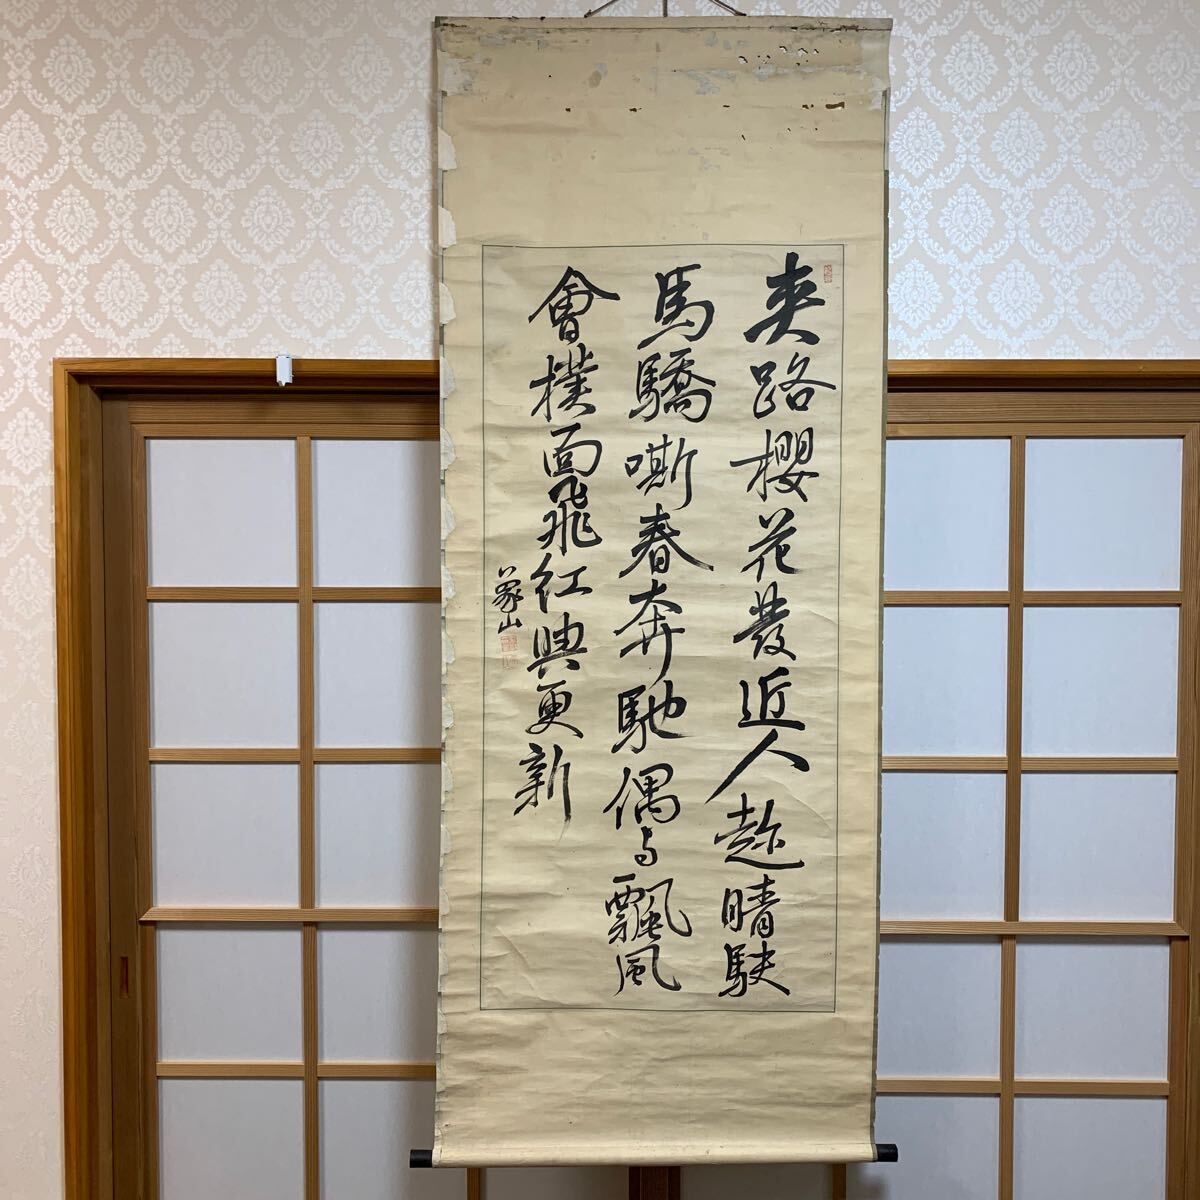 夾路櫻花發近人趁晴駛
馬驕嘶春奔馳偶与飄風
會撲面飛紅興更新
象山